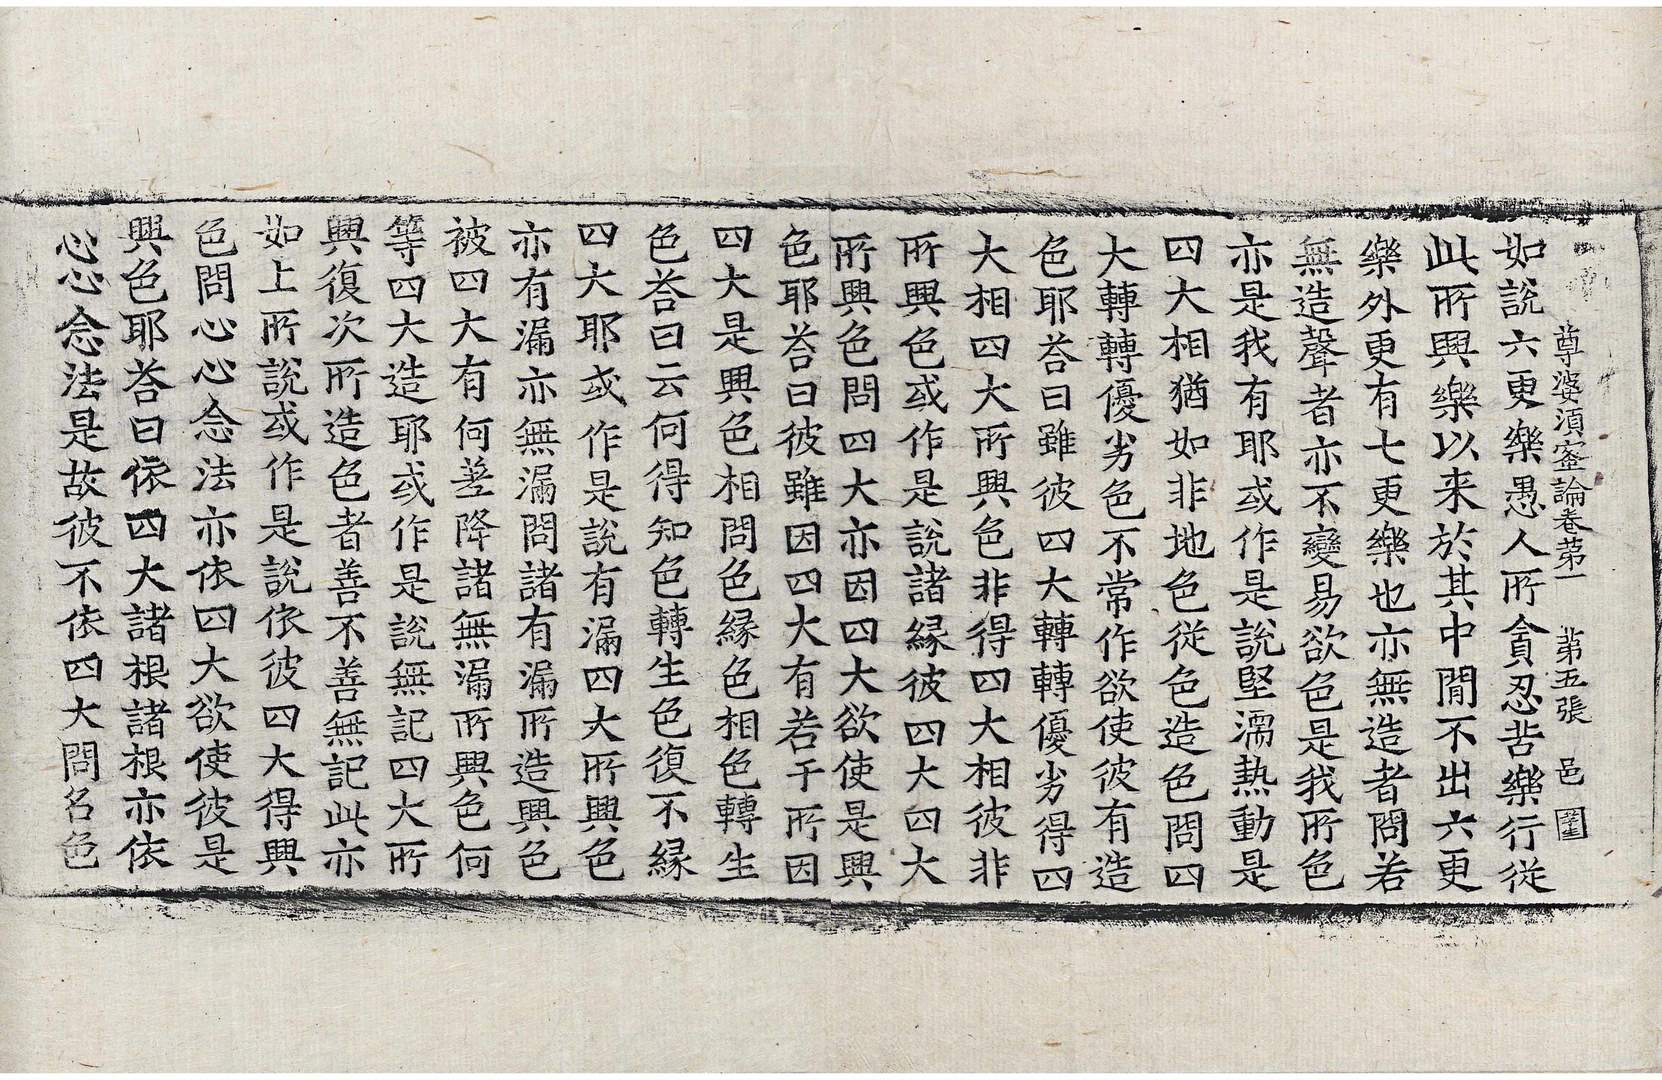 尊婆湏蜜論卷苐一　苐五張　邑
如説六更樂愚人所貪忍苦樂行従
此所興樂以来於其中閒不出六更
樂外更有七更樂也亦無造者問若
無造聲者亦不變易欲色是我所色
亦是我有耶或作是説堅濡熱動是
四大相猶如非地色從色造色問四
大轉轉優劣色不常作欲使彼有造
色耶荅曰雖彼四大轉轉優劣得四
大相四大所興色非得四大相彼非
所興色或作是説諸緣彼四大四大
所興色問四大亦因四大欲使是興
色耶荅曰彼雖因四大有若干所因
四大是興色相問色緣色相色轉生
色荅曰云何得知色轉生色復不緣
四大耶或作是説有漏四大所興色
亦有漏亦無漏問諸有漏所造興色
被四大有何差降諸無漏所興色何
等四大造耶或作是説無記四大所
興復次所造色者善不善無記此亦
如上所説或作是説依彼四大得興
色問心心念法亦依四大欲使彼是
興色耶荅曰依四大諸根諸根亦依
心心念法是故彼不依四大問名色